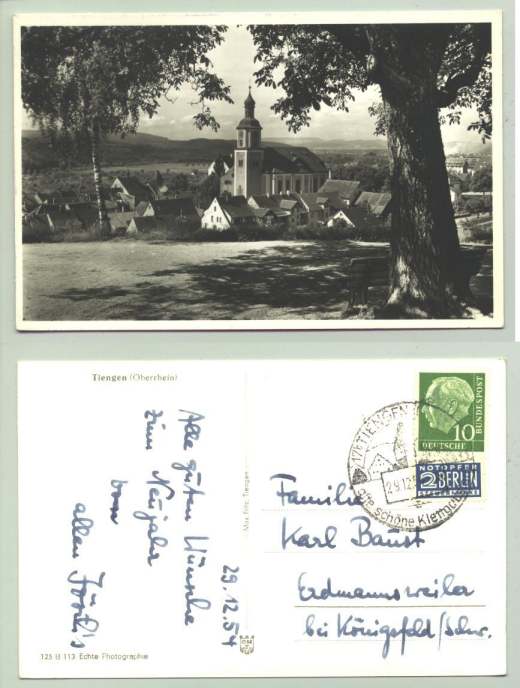 Tiengen (Oberrhein)
Alle guten Wünsche
zum Neujahr
von
allen
29.12.54
125 B 113 Echte Photographie
Tiengen
17b TIENGEN
29.12.5
schöne
10
DEUTSCHE
BUNDESPOST
NOTOPFER
2 BERLIN
STEUERMARKE
Familie
Karl Baust
Erdmannsweiler
bei Königsfeld/Schw.